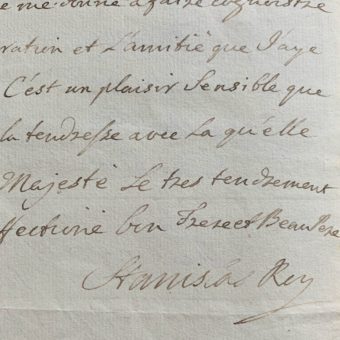 e me donne a faire cognoistre
ration et L'amitié que J'aye
C'est un plaisir Sensible que
la tendresse avec La qu'elle
Majesté Le tres tendrement
ffectioné bon Frere et Beau Pere
Stanislas Roy